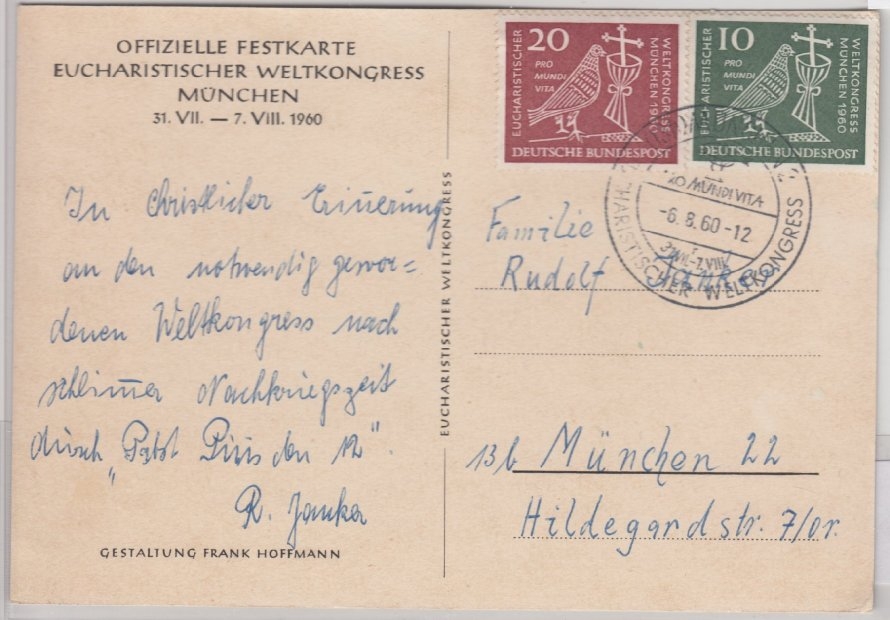 OFFIZIELLE FESTKARTE
EUCHARISTISCHER WELTKONGRESS
MÜNCHEN
31. VII. — 7. VIII. 1960
In christlicher Erinnerung
an den notwendig gewor=
denen Weltkongress nach
schlimmer Nachkriegszeit
durch „Pabst Pius den 12".
R. Janker
GESTALTUNG FRANK HOFFMANN
EUCHARISTISCHER WELTKONGRESS
EUCHARISTISCHER
20
PRO
MUNDI
VITA
WELTKONGRESS
MÜNCHEN 1960
DEUTSCHE BUNDESPOST
EUCHARISTISCHER
10
PRO
MUNDI
VITA
WELTKONGRESS
MÜNCHEN 1960
DEUTSCHE BUNDESPOST
PRO MUNDI VITA
-6.8.60-12
31.VII.-7.VIII.
EUCHARISTISCHER WELTKONGRESS
Familie
Rudolf Janker
13b München 22
Hildegardstr. 7/or.